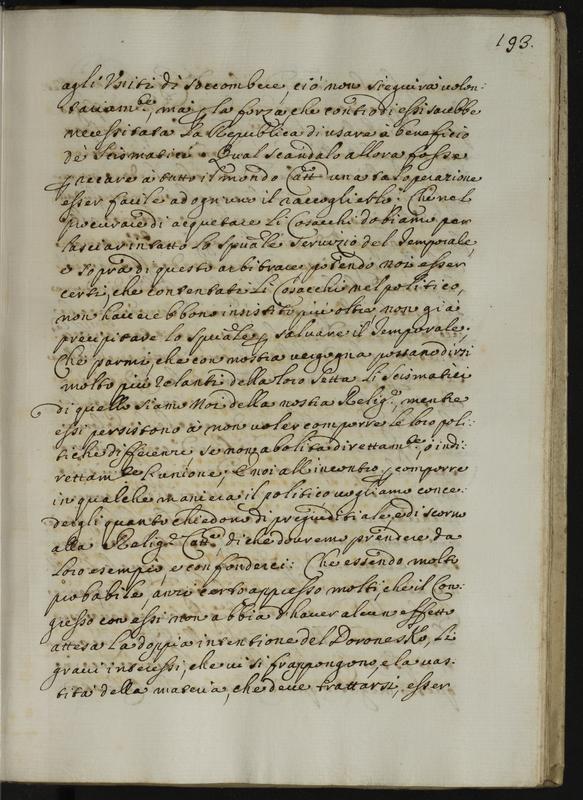 193.
agli Vniti di soccombere, ciò non siequirà uolon:
tariam.te, mà p la forza che contro di essi sarebbe
necessitata la Republica di usare à beneficio
de Scismatici. Qual scandalo allora fosse
p recare à tutto il mondo Catt.o una tal operatione
esser facile ad ogn'uno il raccoglierlo: Che nel
procurare di acquetare li Cosacchi dobiamo per
lasciar intatto lo spùale seruirsi del Temporale,
e sopra di questo arbitrare potendo noi esser
certi, che contentati li Cosacchi nel politico,
non hauerebbono insistito più oltra non già
precipitare lo spùale p saluare il Temporale.
Che parmi, che con nostra uergogna possano dirsi
molto più zelanti della loro Setta li Scismatici
di quello siamo Noi della nostra Relig.e, mentre
essi persistono à non uoler comporre le loro poli:
tiche differenze se non abolita direttam.te, ò indi:
rettam.te l'unione; E noi all'incontro p comporre
in qualche maniera il politico uogliamo conce:
dergli quanto chiedono di pregiuditiale, e di scorno
alla Relig.e Catt.a, di che douremo prendere da
loro esempio, e confonderci: Che essendo molto
probabile, anzi certo appresso molti, che il Con:
gresso con essi non abbia d'hauer alcun effetto
attesa la doppia intentione del Doronesko, li
graui interessi, che ui si frappongono, e la uas:
tità della materia, che deue trattarsi, esser